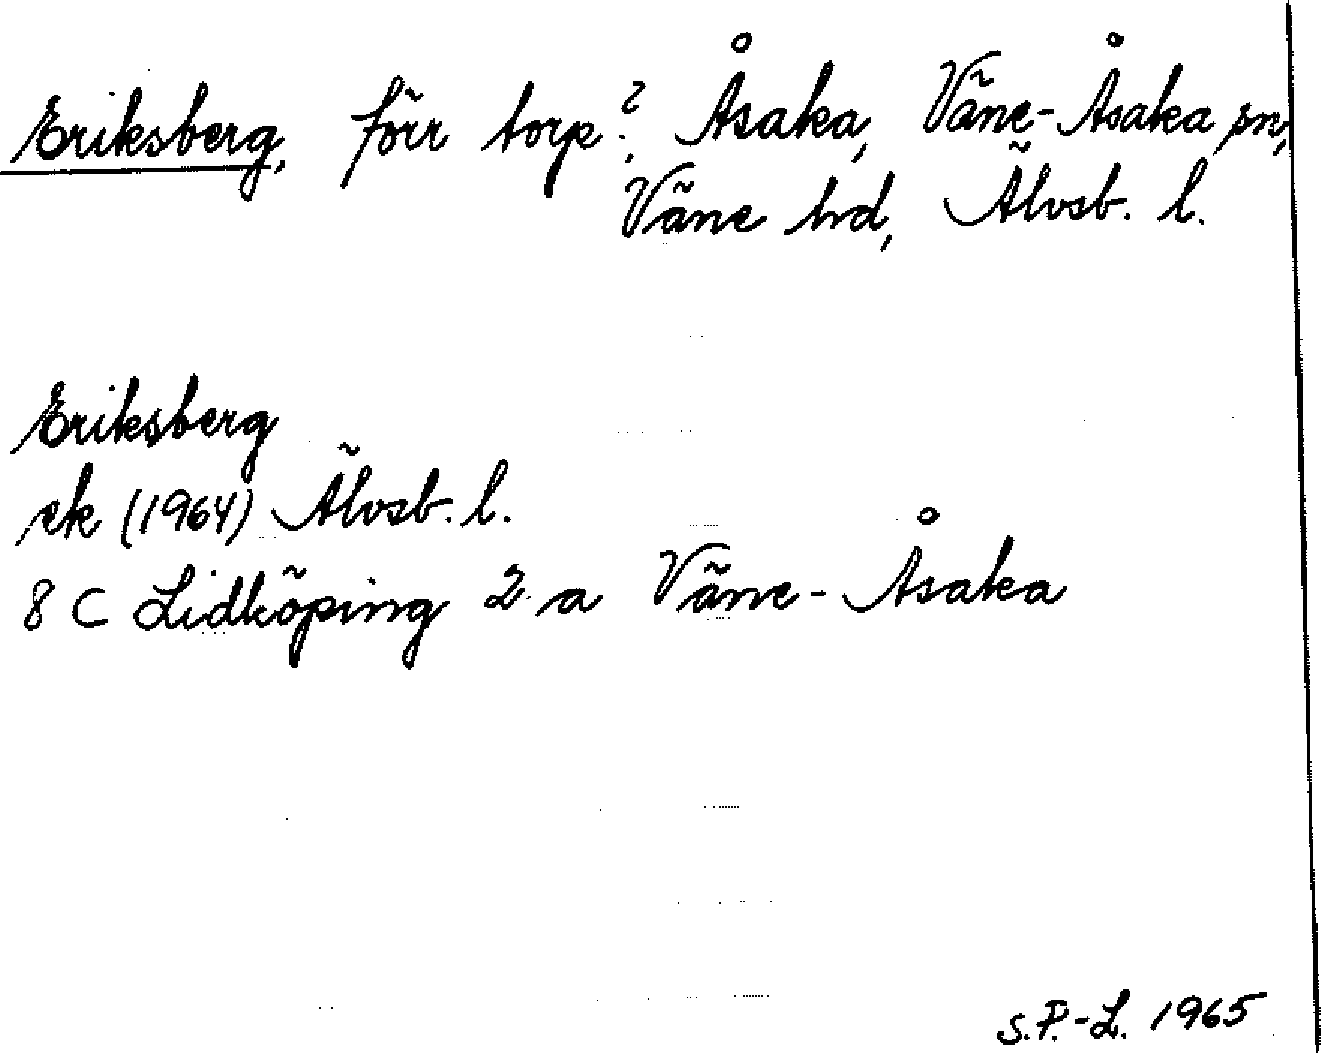 Eriksberg, förr torp?, Åsaka, Väne-Åsaka sn,
Väne hd, Älvsb. l.
Eriksberg
ek (1964) Älvsb. l.
8 C Lidköping 2 a Väne-Åsaka
S.P.-L. 1965